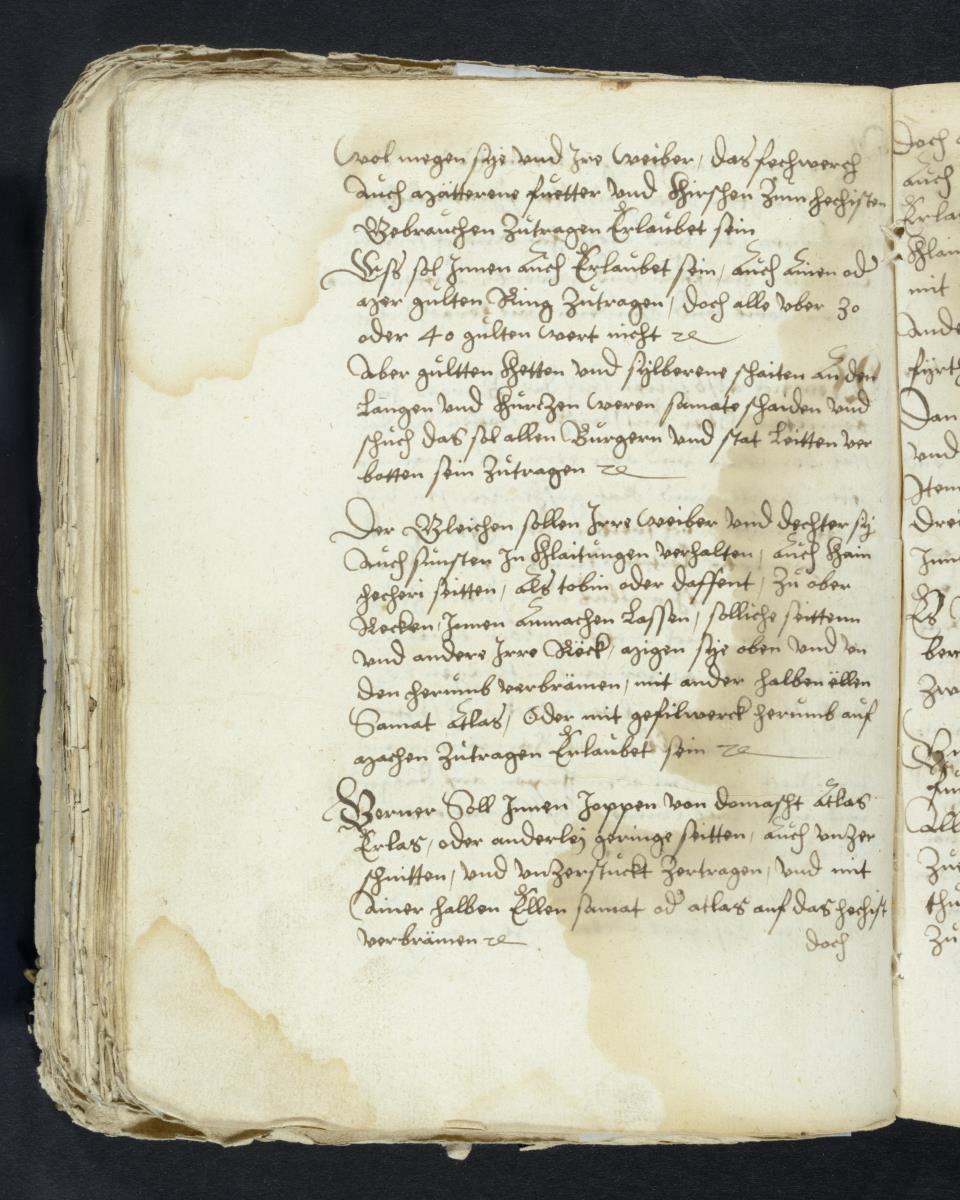 wol megen sÿe vnd Jre weiber, das fechwerch
Auch märterene fuetter vnd Khirschen zum hechisten
Gebrauchen zutragen Erlaubet sein
Esß sol Jnnen Auch Erlaubet sein, Auch Ainen od
mer gulten Ring zutragen, doch alle vber 30
oder 40 gulten wert nicht ec
Aber gultten Khetten vnd sÿlberene schaiten an den
Langen vnd Khurczen weren samate schaiden vnd
schuch das sol allen Burgern vnd stat Leitten ver
botten sein zutragen ec
Der Gleichen sollen Jrre weiber vnd dechter sÿ
Auch sunsten Jn Khlaitungen verhalten, Auch Khain
hecheri seitten, Als tobin oder daffent, zu ober
Recken, Jnnen Anmachen Lassen, solliche seittenn
vnd andere Jrre Röck, migen sÿe oben vnd vn
den herumb verbrämen, mit ander halben ëllen
Samat Atlas, Oder mit gefilwerck herumb auf
machen zutragen Erlaubet sein ec
Verner Soll Jnnen Joppen von domascht Atlas
Erlas, oder anderleÿ geringe seitten, Auch vnzer
schnitten, vnd vnzerstuckt zertragen, vnd mit
Ainer halben Ellen samat od atlas auf das hechist
verbrämen ec
doch